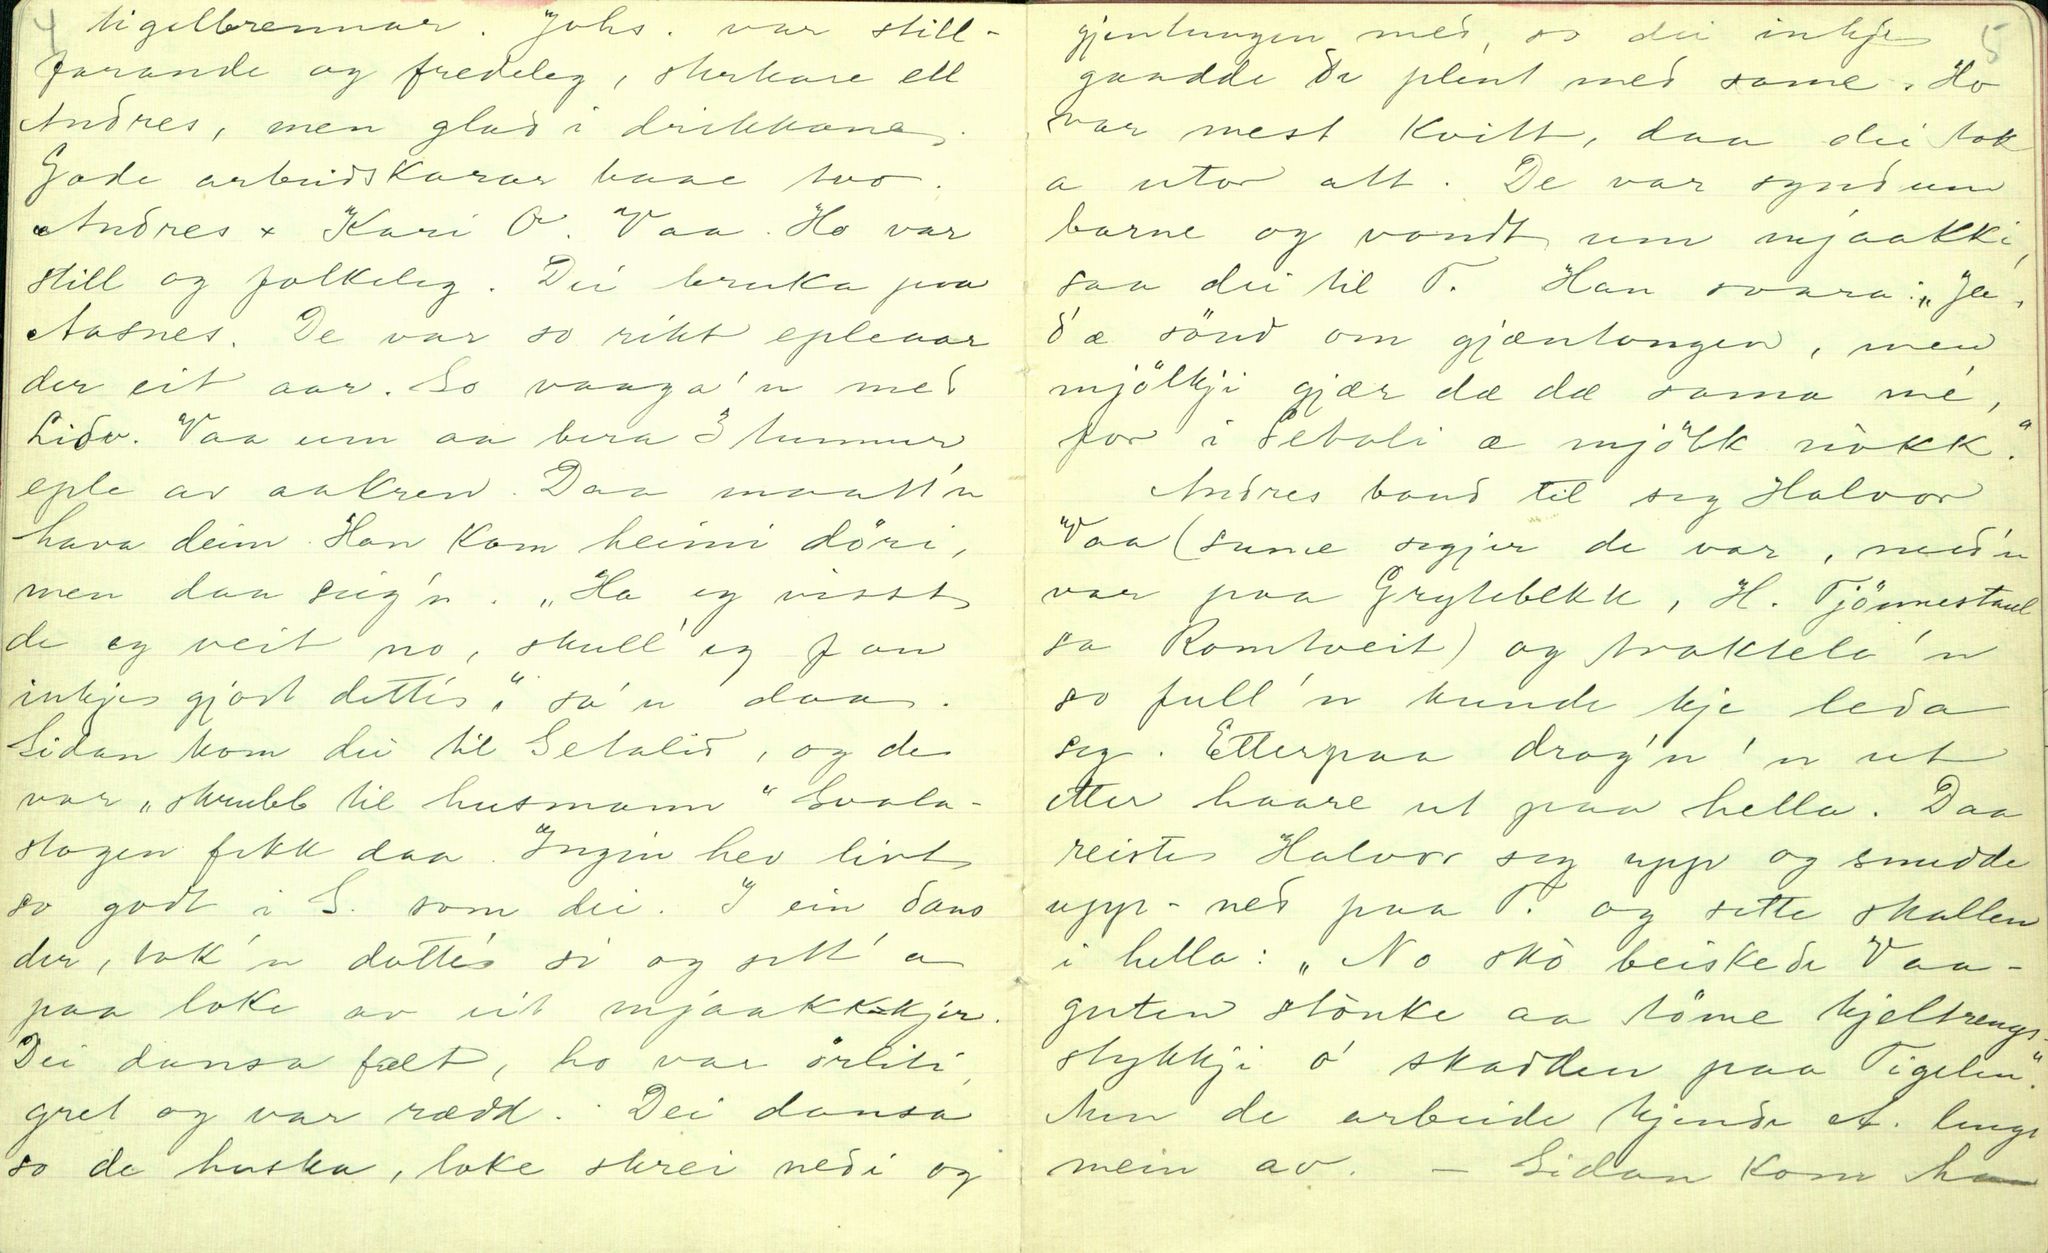 4
tigelbrennar. Johs. var still-
farande og fredeleg, sterkare ell
Andres, men glad i drikkane.
Gode arbeidskarar baae two.
Andres x Kari O. Vaa. Ho var
still og folkeleg. Dei bruka paa
Aasnes. De var so rikt epleaar
der eit aar. So vaaga'n med
Lidv. Vaa um aa bera 3 tunnur
eple av aakren. Daa maatt'n
hava deim. Han kom heimi döri,
men daa seig'n. "Ha eg visst
de eg veit no, skull' eg fan
inkje gjort detti," sa'n daa.
Sidan kom dei til Setalid, og de
var "skrubb til husmann" Svala-
stogen fekk daa. Ingin hev livt
so godt i S. som dei. I ein dans
der, tok'n dotté si og sett' a
paa loke av eit mjaakkkjer.
Dei dansa fælt, ho var örliti,
gret og var rædd. Dei dansa
so de huska, loke skrei nedi og
5
gjentungen med, so dei inkje
gaadde de plent med same. Ho
var mest kvitt, daa dei tok
a utor att. De var synd um
barne og vondt um mjaakki,
saa dei til T. Han svara: "Ja,
d'æ sönd om gjæntongen, men
mjölkji gjær dæ dæ sama mé,
for i Setali æ mjölk nòkk."
Andres baud til seg Halvor
Vaa (sume segjer de var, med'n
var paa Grytebekk, H. Tjönnestaul
sa Romtveit) og traktela'n
so full'n kunde kje leda
seg. Etterpaa drog'n'n ut
etter haare ut paa hella. Daa
reiste Halvor seg upp og snudde
upp-ned paa T. og sette skallen
i hella: "No skò beiskede Vaa-
guten stònke aa töme kjeltrengs-
stykkji ó skadden paa Tigelen."
Men de arbeide kjende A. lenge
mein av. – Sidan kom